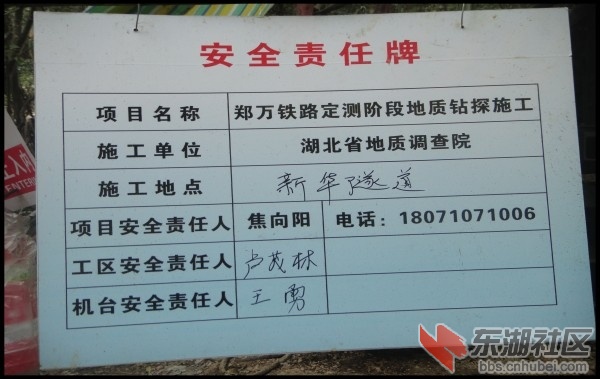 安全责任牌
项目名称 郑万铁路定测阶段地质钻探施工
施工单位 湖北省地质调查院
施工地点 新华隧道
项目安全责任人 焦向阳 电话：18071071006
工区安全责任人 卢茂林
机台安全责任人 王勇
止入内
ENTER
东湖社区
bbs.cnhubei.com